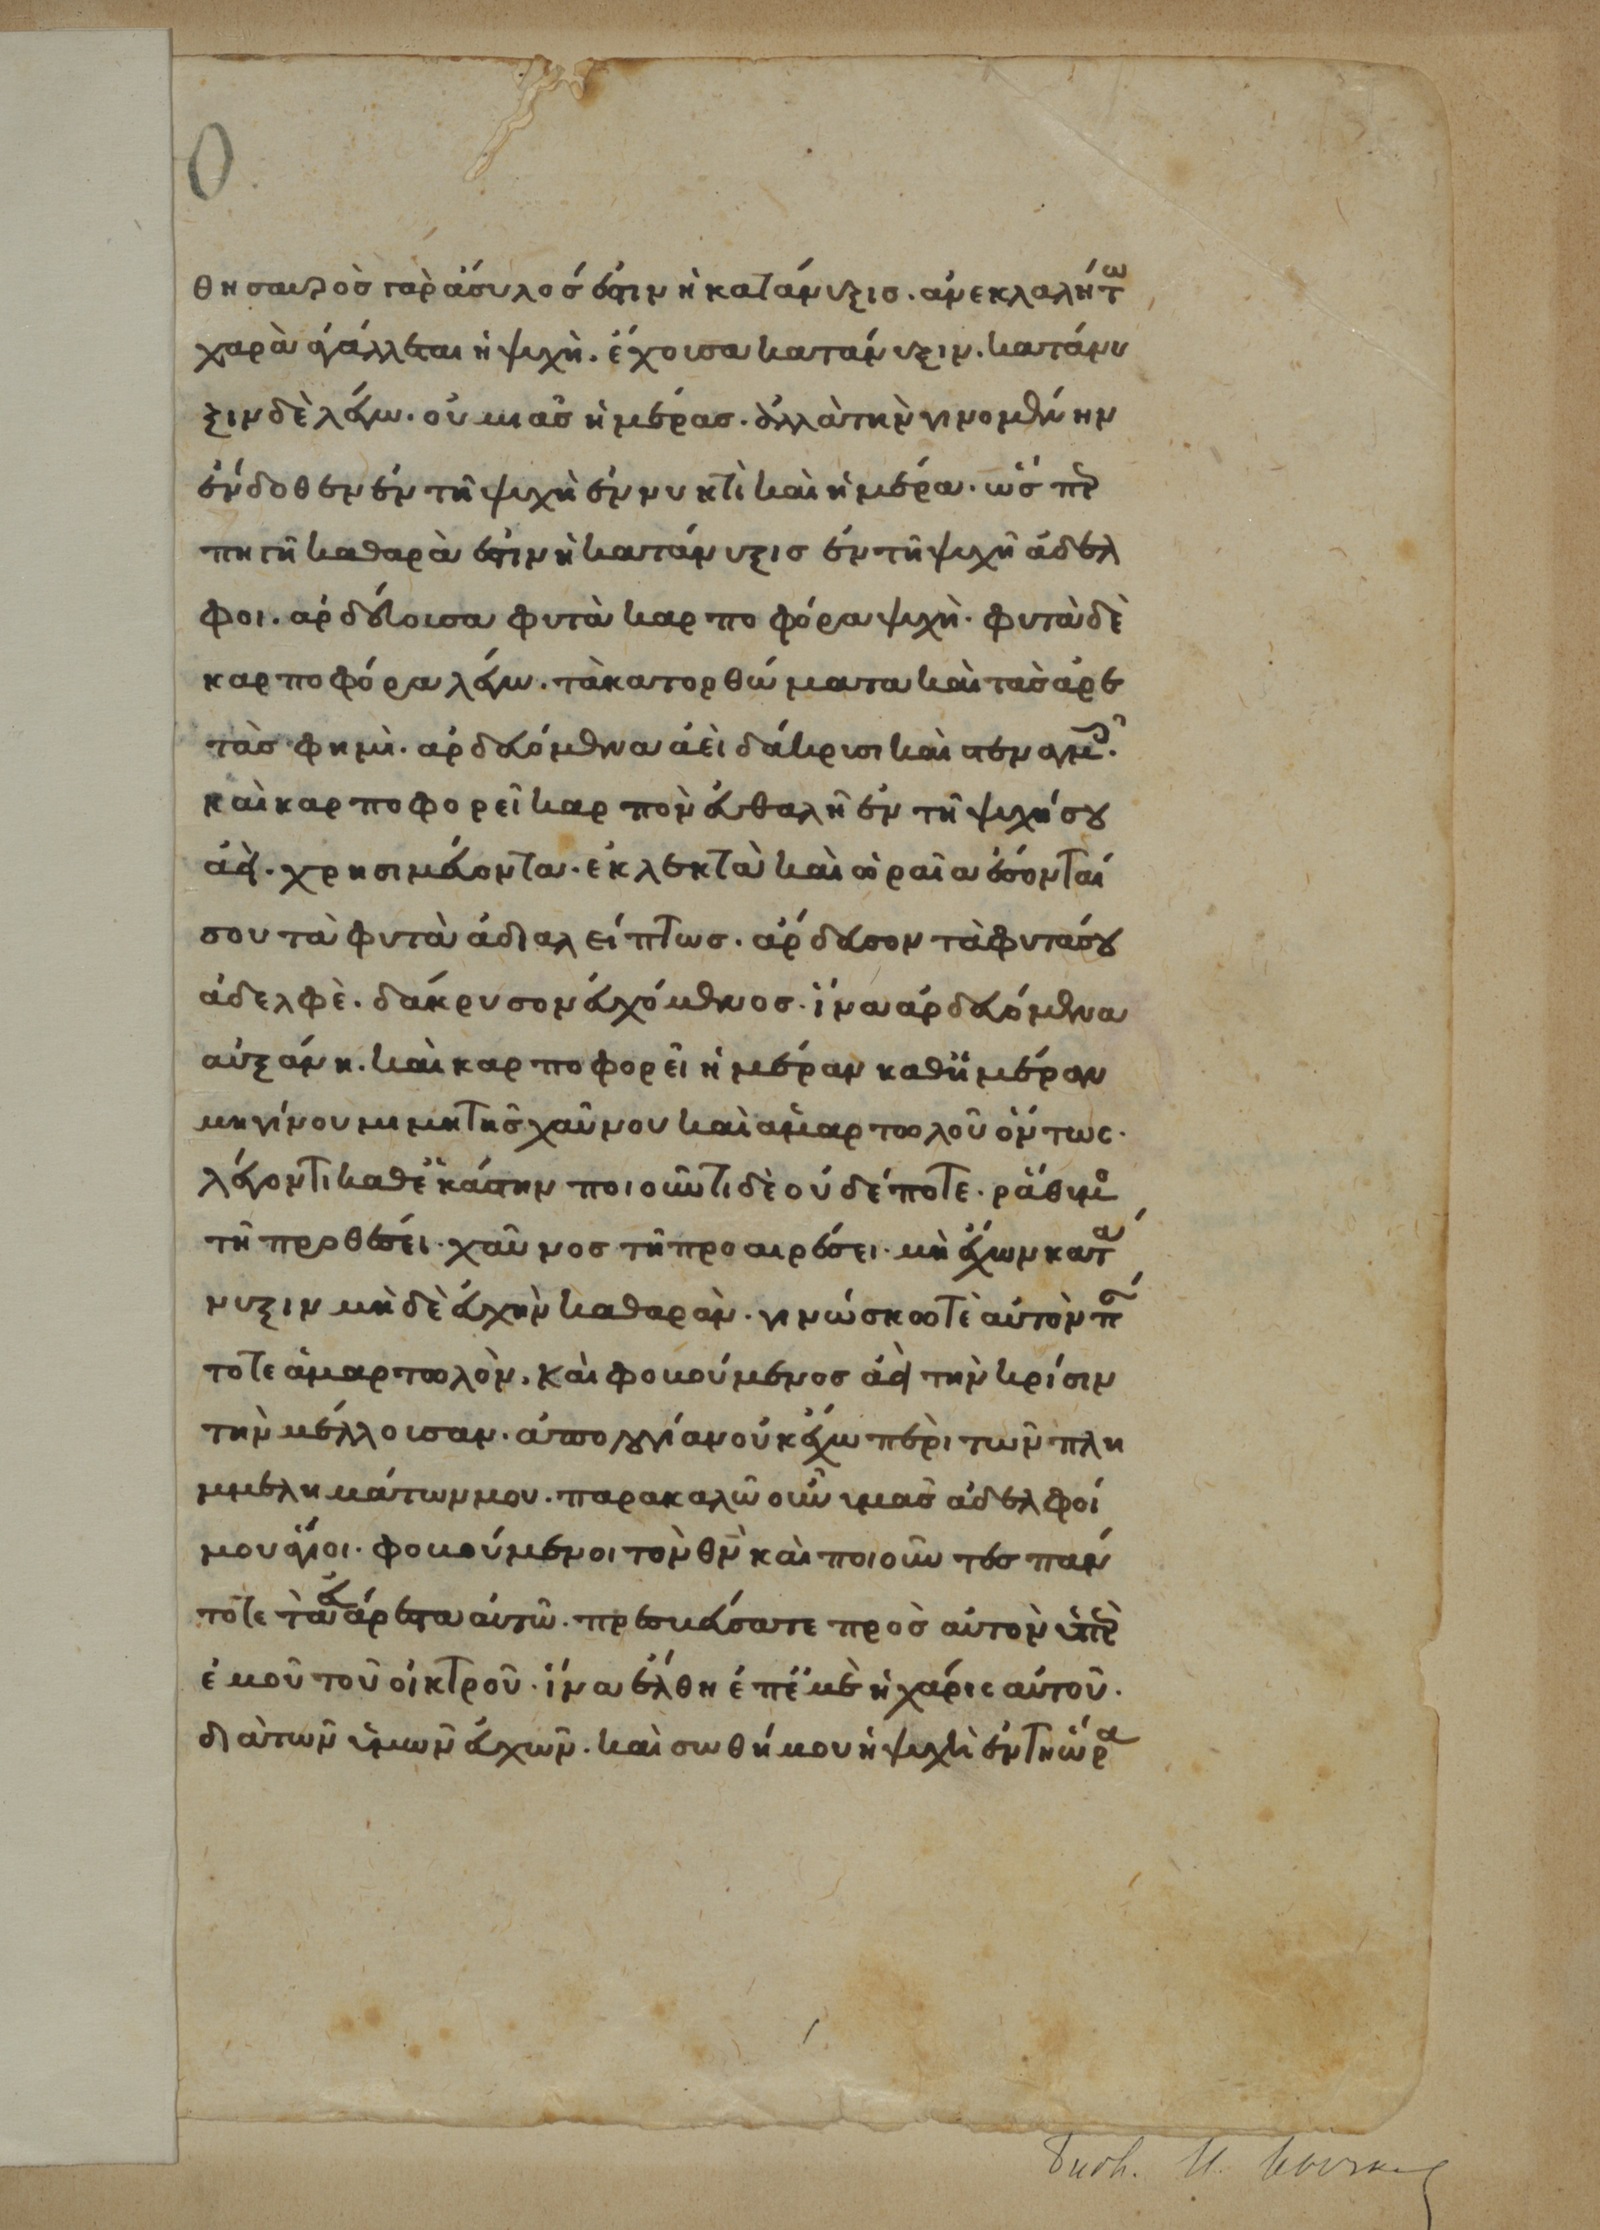 θησαυρὸσ γὰρ ἄσυλοσ ἐστιν ἡ κατάνυξισ. ἀνεκλαλήτω
χαρὰ ἀγάλλεται ἡ ψυχὴ. ἔχουσα κατάνυξιν. κατάνυ
ξιν δὲ λέγω. οὐ μιᾶσ ἡμέρασ. ἀλλὰ τὴν γινομένην
ἔνδοθεν ἐν τῆ ψυχὴ ἐν νυκτὶ καὶ ἡμέρα. ὥσπερ
πηγῆ καθαρὰ ἐστιν ἡ κατάνυξισ ἐν τῆ ψυχῆ ἀδελ
φοι. ἀρδεύουσα φυτὰ καρποφόρα ψυχὴ. φυτὰ δὲ
καρποφόρα λέγω. τὰ κατορθώματα καὶ τὰσ ἀρε
τὰσ φημὶ. ἀρδευόμενα ἀεὶ δάκρυσι καὶ στεναγμοῖσ.
καὶ καρποφορεῖ καρπὸν εὐθαλῆ ἐν τῆ ψυχή σου
ἀεὶ. χρησιμεύοντα. ἐκλεκτὰ καὶ ὡραῖα ἔσονταί
σου τὰ φυτὰ ἀδιαλείπτωσ. ἄρδευσον τὰ φυτά σου
ἀδελφὲ. δάκρυσον εὐχόμενοσ. ἵνα ἀρδευόμενα
αὐξάνη. καὶ καρποφορεῖ ἡμέραν καθ ἡμέραν
μη γίνου μιμητῆσ χαῦνου καὶ ἁμαρτωλοῦ ὄντωσ.
λέγοντι καθ ἑκάστην ποιοῦντι δὲ οὐδέποτε. ράθυμοσ
τῆ προθέσει. χαῦνοσ τῆ προαιρέσει. μὴ ἔχων κατά
νυξιν μὴ δὲ εὐχὴν καθαρὰν. γινώσκωτὲ αὐτὸν πάν
τοτε ἁμαρτωλὸν. καὶ φοβούμενοσ ἀεὶ τὴν κρίσιν
τὴν μέλλουσαν. ἀπολογίαν οὐκ ἔχω πέρι τῶν πλη
μμελημάτων μου. παρακαλῶ οὖν ὑμᾶσ ἀδελφοί
μου ἅγιοι. φοβούμενοι τὸν θν καὶ ποιοῦντέσ πάν
τοτε τὰ εὐάρεστα αὐτῶ. πρεσβεύσατε πρὸσ αὐτὸν ὑπὲρ
ἐμοῦ τοῦ οἰκτροῦ. ἵνα ἔλθη ἐπ ἐμὲ ἡ χάρις αὐτοῦ.
διὰ τῶν ὑμῶν εὐχῶν. καὶ σωθή μου ἡ ψυχὴ ἐν τη ὥρα